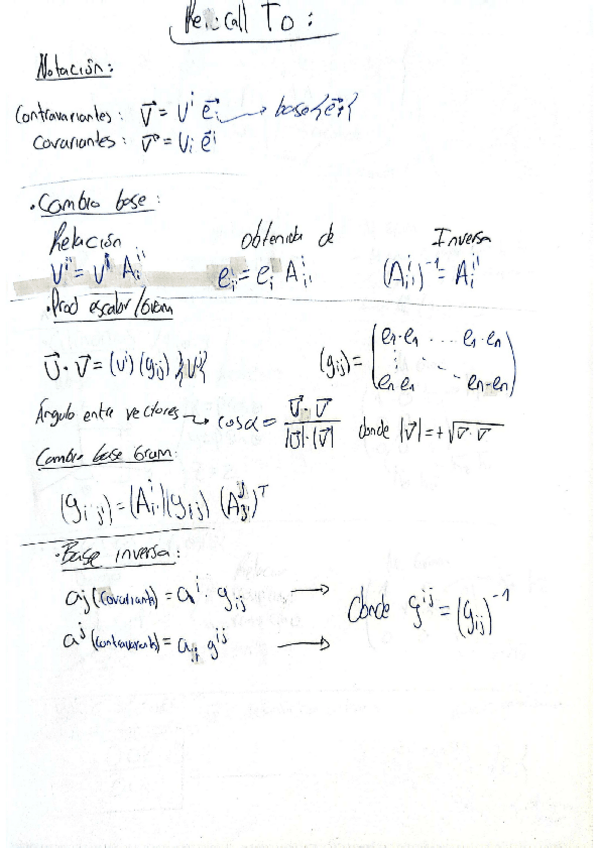 Recall T0:
Notación:
Contravariantes: v⃗ = vⁱ e⃗ᵢ → base{e⃗ᵢ}
Covariantes: v⃗ = vᵢ e⃗ⁱ
·Cambio base:
Relación obtenida de Inversa
vⁱ' = vⁱ Aᵢⁱ' eᵢ' = eᵢ Aᵢ'ⁱ (Aᵢ'ⁱ)⁻¹ = Aᵢⁱ'
·Prod escalar/Gram
U⃗ · V⃗ = (uⁱ)(gᵢⱼ){vʲ} (gᵢⱼ) = (e₁·e₁ ... e₁·eₙ
eₙ·e₁ eₙ·eₙ)
Ángulo entre vectores → cosα = U⃗·V⃗ / |U⃗|·|V⃗| donde |v⃗| = +√v⃗·v⃗
Cambio base Gram:
(gᵢ'ⱼ') = (Aᵢ'ⁱ)(gᵢⱼ)(Aⱼ'ʲ)ᵀ
·Base inversa:
aⱼ (covariante) = aⁱ · gᵢⱼ →
Donde gⁱʲ = (gᵢⱼ)⁻¹
aʲ (contravariante) = aᵢ gⁱʲ →